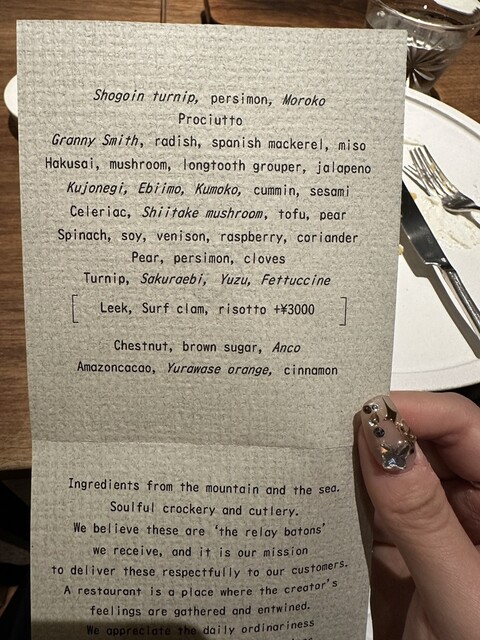 Shogoin turnip, persimon, Moroko
Prociutto
Granny Smith, radish, spanish mackerel, miso
Hakusai, mushroom, longtooth grouper, jalapeno
Kujonegi, Ebiimo, Kumoko, cummin, sesami
Celeriac, Shiitake mushroom, tofu, pear
Spinach, soy, venison, raspberry, coriander
Pear, persimon, cloves
Turnip, Sakuraebi, Yuzu, Fettuccine
[ Leek, Surf clam, risotto +¥3000 ]
Chestnut, brown sugar, Anco
Amazoncacao, Yurawase orange, cinnamon
Ingredients from the mountain and the sea.
Soulful crockery and cutlery.
We believe these are ‘the relay batons’
we receive, and it is our mission
to deliver these respectfully to our customers.
A restaurant is a place where the creator's
feelings are gathered and entwined.
We appreciate the daily ordinariness